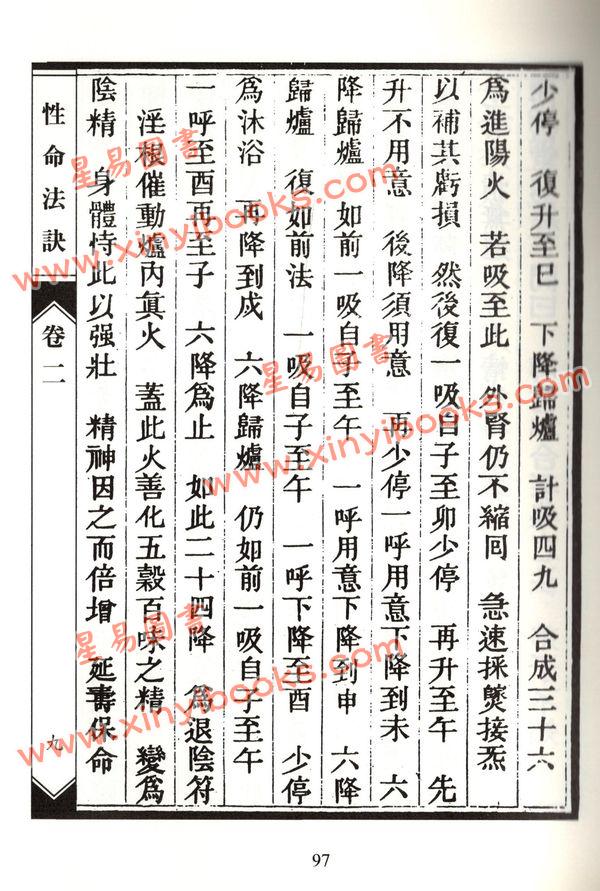 少停　復升至巳　下降歸爐　計吸四九　合成三十六
為進陽火　若吸至此　外腎仍不縮回　急速採𤇆接炁
以補其虧損　然後復一吸自子至卯少停　再升至午　先
升不用意　後降須用意　再少停一呼用意下降到未　六
降歸爐　如前一吸自子至午　一呼用意下降到申　六降
歸爐　復如前法　一吸自子至午　一呼下降至酉　少停
為沐浴　再降到戍　六降歸爐　仍如前一吸自子至午
一呼至酉再至子　六降為止　如此二十四降　為退陰符
淫根催動爐內眞火　蓋此火善化五穀百味之精　變為
陰精　身體恃此以强壯　精神因之而倍增　延壽保命
性命法訣
卷二
九
97
星易圖書
www.xinyibooks.com
星易圖書
www.xinyibooks.com
星易圖書
www.xinyibooks.com